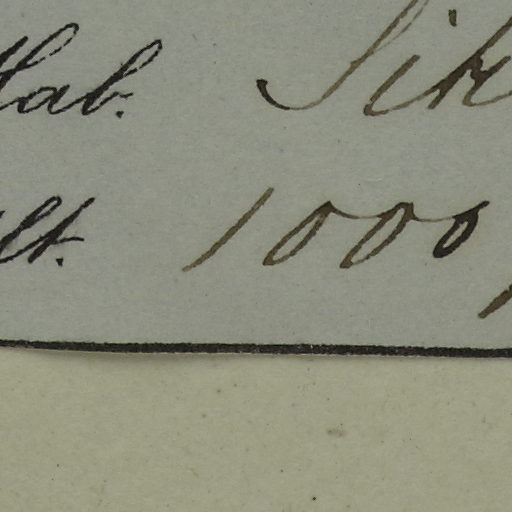 Hab. Sik
Alt. 1000